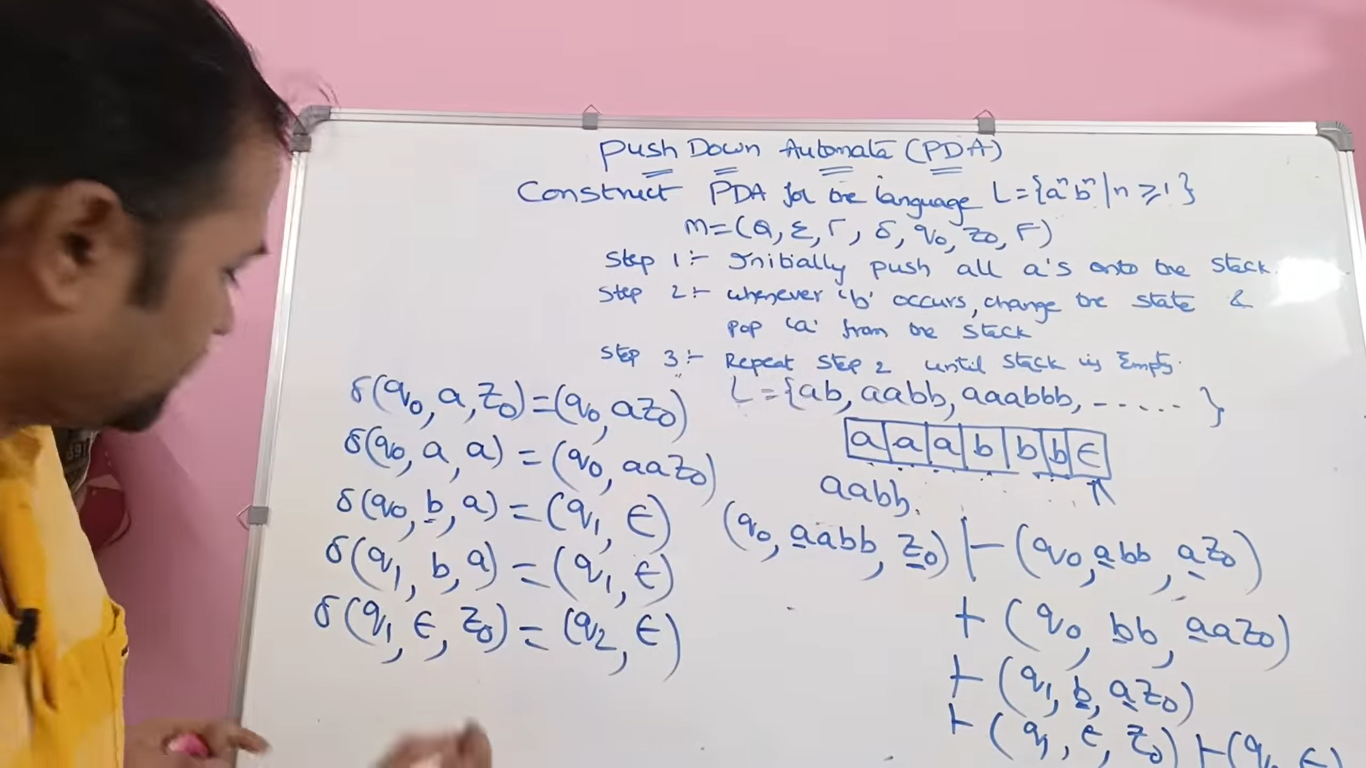 Push Down Automata (PDA)
Construct PDA for the language L={aⁿbⁿ|n≥1}
M=(Q, Σ, Γ, δ, q₀, z₀, F)
Step 1:- Initially push all a's onto the stack.
Step 2:- whenever 'b' occurs, change the state &
pop 'a' from the stack
Step 3:- Repeat step 2 until stack is Empty.
L={ab, aabb, aaabbb, ------ }
a a a b b b ϵ
aabb.
δ(q₀, a, z₀)=(q₀, az₀)
δ(q₀, a, a)=(q₀, aaz₀)
δ(q₀, b, a)=(q₁, ϵ)
δ(q₁, b, a)=(q₁, ϵ)
δ(q₁, ϵ, z₀)=(q₂, ϵ)
(q₀, aabb, z₀) ⊢ (q₀, abb, az₀)
⊢ (q₀, bb, aaz₀)
⊢ (q₁, b, az₀)
⊢ (q₁, ϵ, z₀) ⊢ (q